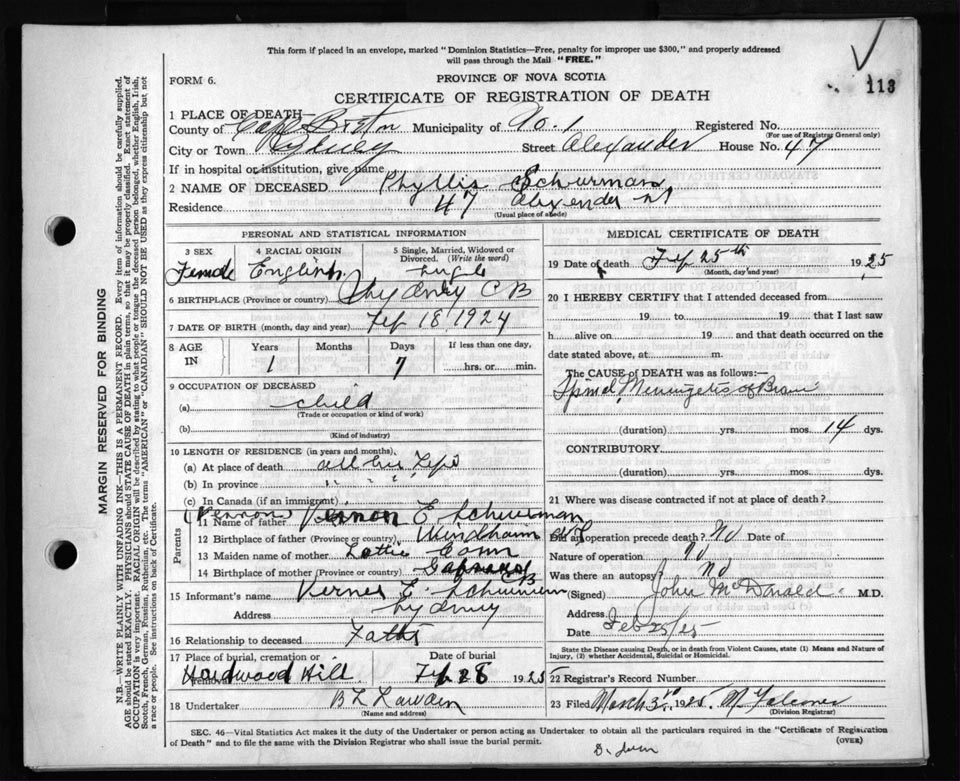 This form if placed in an envelope, marked "Dominion Statistics—Free, penalty for improper use $300," and properly addressed
will pass through the Mail "FREE."
113
FORM 6.
PROVINCE OF NOVA SCOTIA
CERTIFICATE OF REGISTRATION OF DEATH
1 PLACE OF DEATH—
County of Cape Breton Municipality of No. 1 Registered No.
(For use of Registrar General only)
City or Town Sydney Street Alexander House No. 47
If in hospital or institution, give name
2 NAME OF DECEASED Phyllis Schurman
Residence 47 Alexander St
(Usual place of abode)
PERSONAL AND STATISTICAL INFORMATION
3 SEX 4 RACIAL ORIGIN 5 Single, Married, Widowed or
Divorced. (Write the word)
Female English Single
6 BIRTHPLACE (Province or country) Sydney C B
7 DATE OF BIRTH (month, day and year) Feb 18 1924
8 AGE Years Months Days If less than one day,
IN 1 7 hrs. or min.
9 OCCUPATION OF DECEASED
(a) child
(Trade or occupation or kind of work)
(b)
(Kind of industry)
10 LENGTH OF RESIDENCE (in years and months)
(a) At place of death all her Life
(b) In province " " "
(c) In Canada (if an immigrant)
(Vernon)
Parents
11 Name of father Vernon E Schurman
12 Birthplace of father (Province or country) Windham N.S
13 Maiden name of mother Lottie
14 Birthplace of mother (Province or country) Gabarus CB
15 Informant's name Vernon E. Schurman
Address Sydney
16 Relationship to deceased Father
17 Place of burial, cremation or removal Date of burial
Hardwood Hill Feb 28 1925
18 Undertaker B L
(Name and address)
MEDICAL CERTIFICATE OF DEATH
19 Date of death Feb 25th 1925
(Month, day and year)
20 I HEREBY CERTIFY that I attended deceased from
19 to 19 that I last saw
h alive on 19 and that death occurred on the
date stated above, at m.
The CAUSE of DEATH was as follows:—
Spinal Meningetis of Brain
(duration) yrs. mos. 14 dys.
CONTRIBUTORY.
(duration) yrs. mos. dys.
21 Where was disease contracted if not at place of death?
Did an operation precede death? No Date of
Nature of operation No
Was there an autopsy? No
(Signed) John McDonald M.D.
Address
Date Feb 25/25
State the Disease causing Death, or in death from Violent Causes, state (1) Means and Nature of
Injury, (2) whether Accidental, Suicidal or Homicidal.
22 Registrar's Record Number
23 Filed March 3rd 1925
(Division Registrar)
SEC. 46—Vital Statistics Act makes it the duty of the Undertaker or person acting as Undertaker to obtain all the particulars required in the "Certificate of Registration
of Death" and to file the same with the Division Registrar who shall issue the burial permit.
(OVER)
MARGIN RESERVED FOR BINDING
N.B.—WRITE PLAINLY WITH UNFADING INK—THIS IS A PERMANENT RECORD. Every item of information should be carefully supplied.
AGE should be stated EXACTLY. PHYSICIANS should STATE CAUSE OF DEATH in plain terms, so that it may be properly classified. Exact statement of
OCCUPATION is very important. RACIAL ORIGIN will be described by stating to what people or tongue the deceased person belonged, whether English, Irish,
Scotch, French, German, Russian, Ruthenian, etc. The terms "AMERICAN" or "CANADIAN" SHOULD NOT BE USED as they express citizenship but not
a race or people. See instructions on back of Certificate.